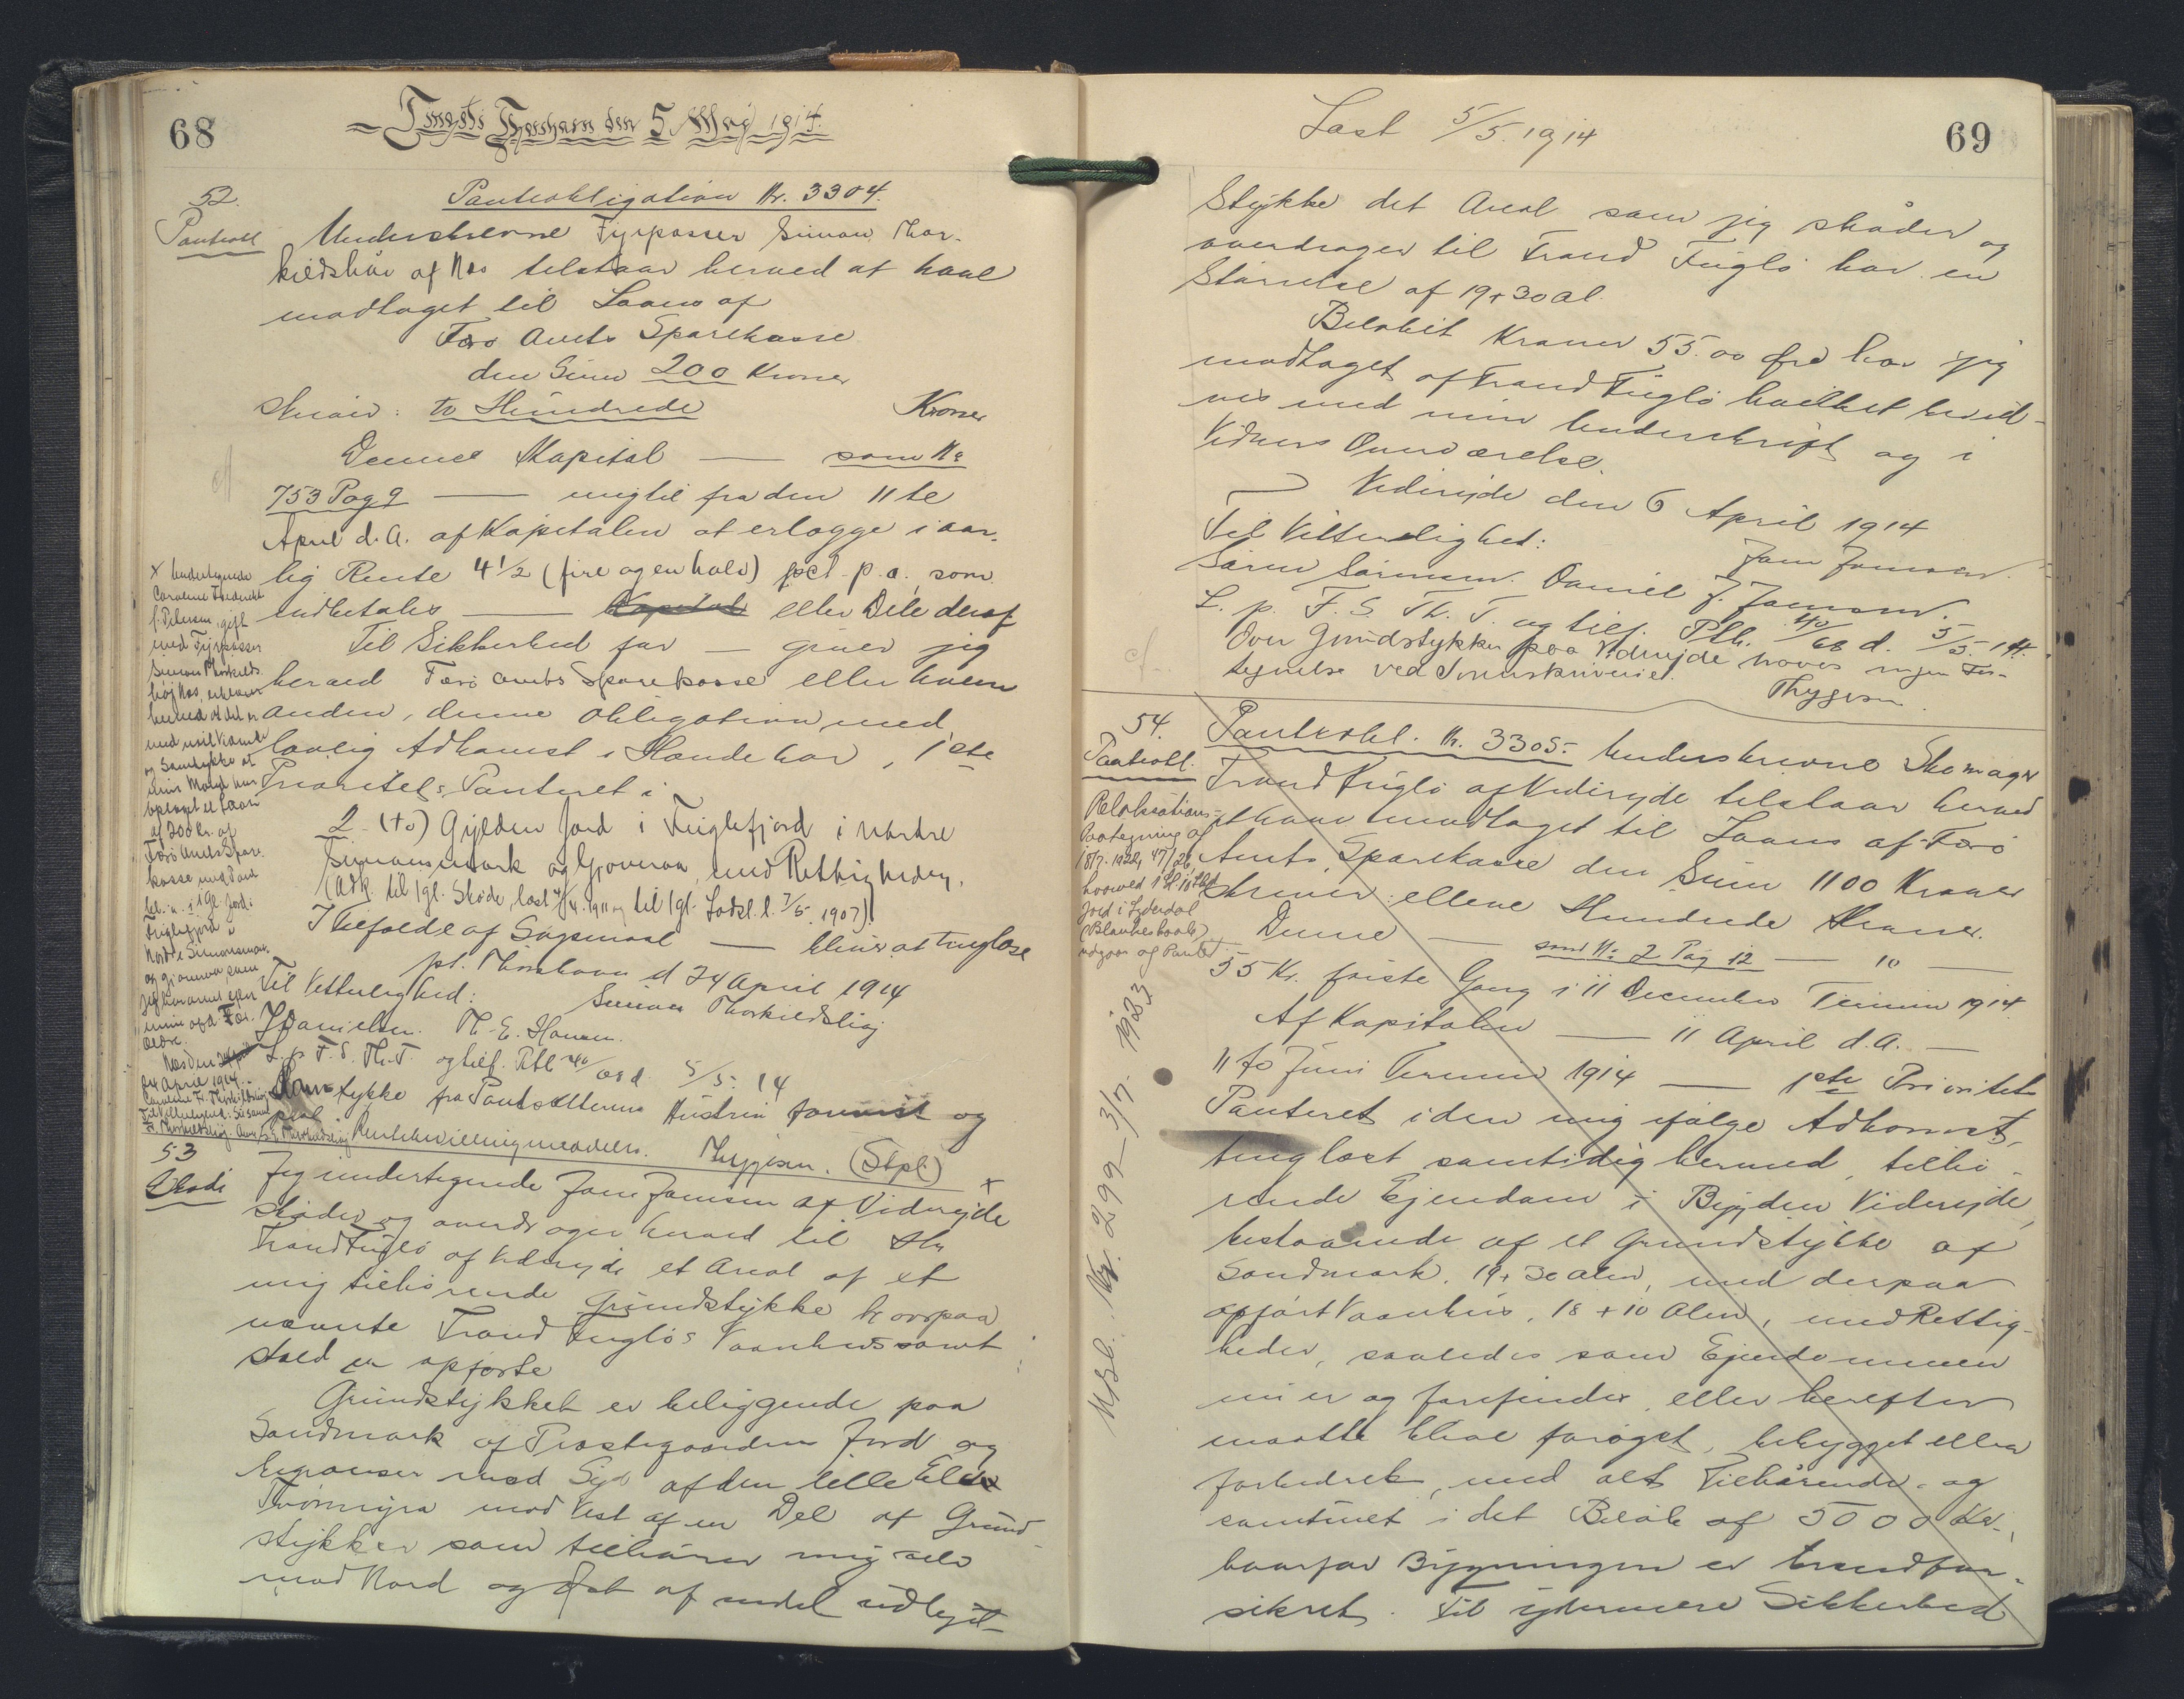 68
Tingsti Thorshavn den 5 Maj 1914.
52.
Pantobl
Pantobligation Nr. 3304.
Underskrevne Fyrpasser Simon Thor-
kildshöi af Nes tilstaar herved at have
modtaget til Laans af
Færø Amts Sparekasse
den Sum 200 Kroner
skriver: to Hundrede Kroner
Denne Kapital — som No
753 Pag 9 — mig til fra den 11te
April d.A. af Kapitalen at erlægge i aar-
lig Rente 4 1/2 (fire og en halv) pct. p.a. som
indbetales — Kapital eller Dele deraf
Til Sikkerhed for — giver jeg
herved Færø Amts Sparekasse eller hvem
anden, denne Obligation med
lovlig Adkomst i Hænde har, 1ste
Prioritets Panteret i
2 (to) Gylden Jord i Fuglefjord i Nordre
Simonsmark og Gjoveraa med Rettigheder.
(Adk. til 1 gl. Skøde, læst 4/4. 1911 og til 1 gl. Lodsl. l. 7/5. 1907)
I Tilfælde af Søgsmaal — bliver at tinglæse
pt. Thorshavn d 24 April 1914
Til Vitterlighed: Simon Thorkildshöj
J Danielsen. Th. E. Hansen.
L. p. F. S. Th. T. og tilf. Ptbl 40/ d. 5/5. 14
Samtykke fra Pantsætterens Hustru forevist og
Thygesen. (Stpl.)
x Undertegnede
Caroline Frederikke
f. Petersen gift
med Fyrpasser
Simon Thorkilds-
höj Nes, erklærer
herved at det er
med mit Vidende
og Samtykke at
min Mand har
optaget et Laan
af 200 Kr. af
Færø Amts Spare-
kasse mod Pant
bl. a. i 1 gl. Jord i
Fuglefjord i
Nordre Simonsmark
og Gjoveraa som
jeg har arvet efter
mine
24 April 1914.
53
Skøde
Jeg undertegnede Jane Jansen af Viderejde x
skøder og overdrager herved til
Trand Fuglö af Viderejde et Areal af et
mig tilhörende Grundstykke hvorpaa
nævnte Trand Fuglös Vaanhus samt
Stald er opförte
Grundstykket er beliggende paa
Sandmark af Præstegaardens Jord og
begrænser mod Syd af den lille Elv
mod Vest af en Del af Grund-
stykker som tilhörer mig selv
mod Nord og Öst af andet udlejet
Læst 5/5. 1914
69
Stykke det Areal som jeg skøder og
overdrager til Trand Fuglö har en
Störrelse af 19 x 30 Al.
Belöbet Kroner 55.00 Øre har jeg
modtaget af Trand Fuglö hvilket bevid-
nes med min Underskrift og i
Vidners Overværelse.
Viderejde den 6 April 1914
Til Vitterlighed: Jane Jansen.
Sören Sörensen. Daniel J. Joensen.
L. p. F. S. Th. T. og tilf. Ptb. 40/68 d. 5/5. 14.
Over Grundstykker paa Viderejde haves ingen For-
tegnelse ved Sorenskriveriet.
Thygesen.
54.
Pantobl.
Pantobl. Nr. 3305. Underskrevne Skomager
Trand Fuglö af Viderejde tilstaar herved
at have modtaget til Laans af Færö
Amts Sparekasse den Sum 1100 Kroner
skriver: elleve Hundrede Kroner.
Denne — som No 2 Pag 12 — 10 —
55 Kr. förste Gang i 11 December Termin 1914
Af Kapitalen — 11 April d.A. —
11 to Juni Termin 1914 — 1ste Prioritets
Panteret i den mig ifølge Adkomst,
tinglæst samtidig hermed, tilhö-
rende Ejendom i Bygden Viderejde,
bestaaende af et Grundstykke af
Sandmark, 19 x 30 Alen, med derpaa
opfört Vaanhus, 18 x 10 Alen, med Rettig-
heder, saaledes som Ejendommen
nu er og forefindes, eller herefter
maatte blive foröget, bebygget eller
forbedret, med alt Tilhörende og
samtinet i det Belöb af 5000 Kr.,
hvorfor Bygningen er brandfor-
sikret. Til ydermere Sikkerhed
Relaksations-
Paategning af
18/7. 1922, 47/26
hvorved
Jord i Lyderdal
udgaar af Pantet
Udsl. Nr. 299 — 3/7. 1923